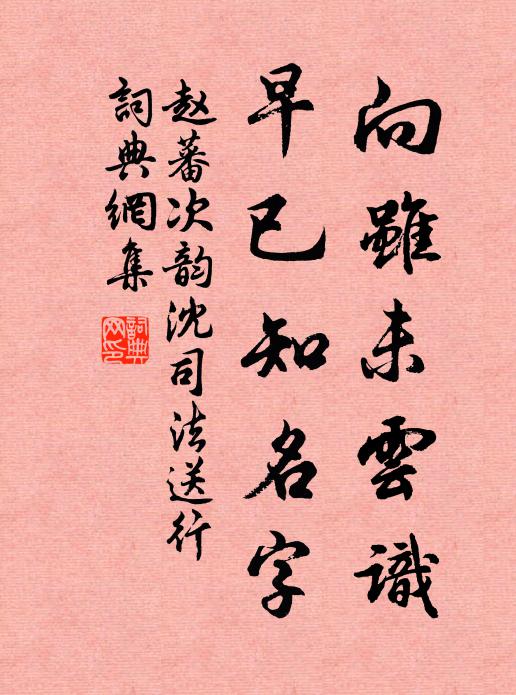 向雖未雲識
早已知名字
赵蕃次韵沈司法送行
詞典網集
詞典网印